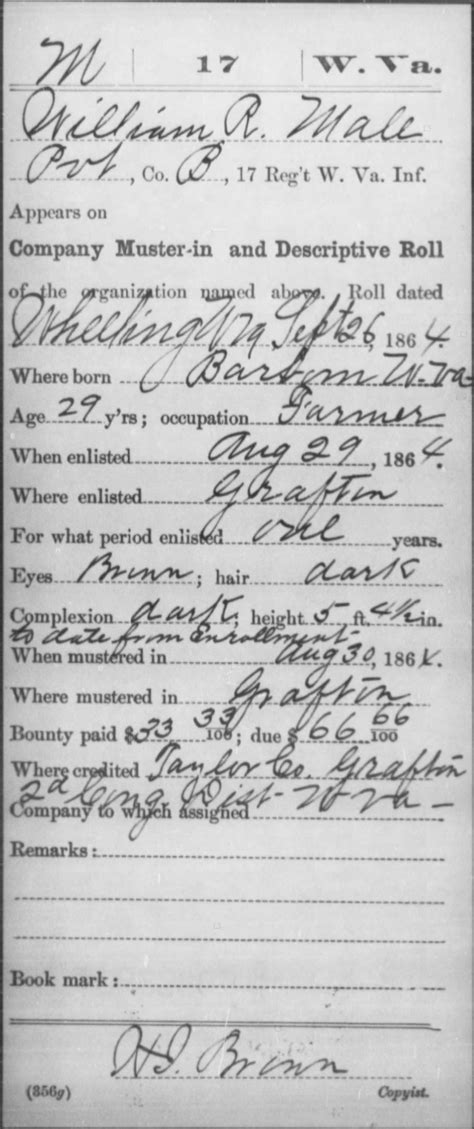 M | 17 | W. Va.
William R. Male
Pvt, Co. B, 17 Reg't W. Va. Inf.
Appears on
Company Muster-in and Descriptive Roll
of the organization named above. Roll dated
Wheeling Va Sept 26, 1864.
Where born Barbour W. Va
Age 29 y'rs; occupation Farmer
When enlisted Aug 29, 1864.
Where enlisted Grafton
For what period enlisted one years.
Eyes Brown; hair dark
Complexion dark, height 5 ft. 4½ in.
to date from enrollment
When mustered in Aug 30, 1864.
Where mustered in Grafton
Bounty paid $33 33/100; due $66 66/100
Where credited Taylor Co. Grafton
2d Cong Dist W Va
Company to which assigned
Remarks:
Book mark:
Brown
(356g) Copyist.